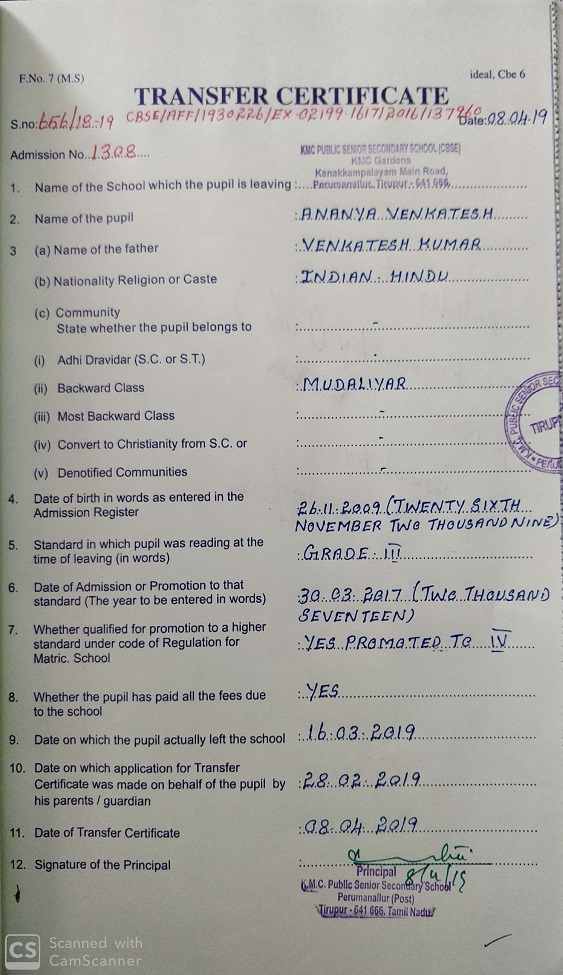 F.No. 7 (M.S)
ideal, Cbe 6
TRANSFER CERTIFICATE
S.no: 656/18-19 CBSE/AFF/1930226/EX-02199-1617/2016/137960 Date: 08.04.19
Admission No. 1308
KMC PUBLIC SENIOR SECONDARY SCHOOL (CBSE)
KMC Gardens
Kanakkampalayam Main Road,
1. Name of the School which the pupil is leaving : Perumanallur, Tirupur - 641 666.
2. Name of the pupil : ANANYA VENKATESH
3 (a) Name of the father : VENKATESH KUMAR
(b) Nationality Religion or Caste : INDIAN - HINDU
(c) Community
State whether the pupil belongs to : -
(i) Adhi Dravidar (S.C. or S.T.) : -
(ii) Backward Class : MUDALIYAR
(iii) Most Backward Class : -
(iv) Convert to Christianity from S.C. or : -
(v) Denotified Communities : -
K.M.C. PUBLIC SENIOR SEC
TIRUP
PERU
4. Date of birth in words as entered in the 26.11.2009 (TWENTY SIXTH
Admission Register NOVEMBER TWO THOUSAND NINE)
5. Standard in which pupil was reading at the
time of leaving (in words) : GRADE - III
6. Date of Admission or Promotion to that : 30.03.2017 (TWO THOUSAND
standard (The year to be entered in words) SEVENTEEN)
7. Whether qualified for promotion to a higher
standard under code of Regulation for : YES PROMOTED TO IV
Matric. School
8. Whether the pupil has paid all the fees due : YES
to the school
9. Date on which the pupil actually left the school : 16.03.2019
10. Date on which application for Transfer
Certificate was made on behalf of the pupil by : 28.02.2019
his parents / guardian
11. Date of Transfer Certificate : 08.04.2019
12. Signature of the Principal :
Principal 8/4/19
K.M.C. Public Senior Secondary School
Perumanallur (Post)
Tirupur - 641 666. Tamil Nadu
CS Scanned with
CamScanner